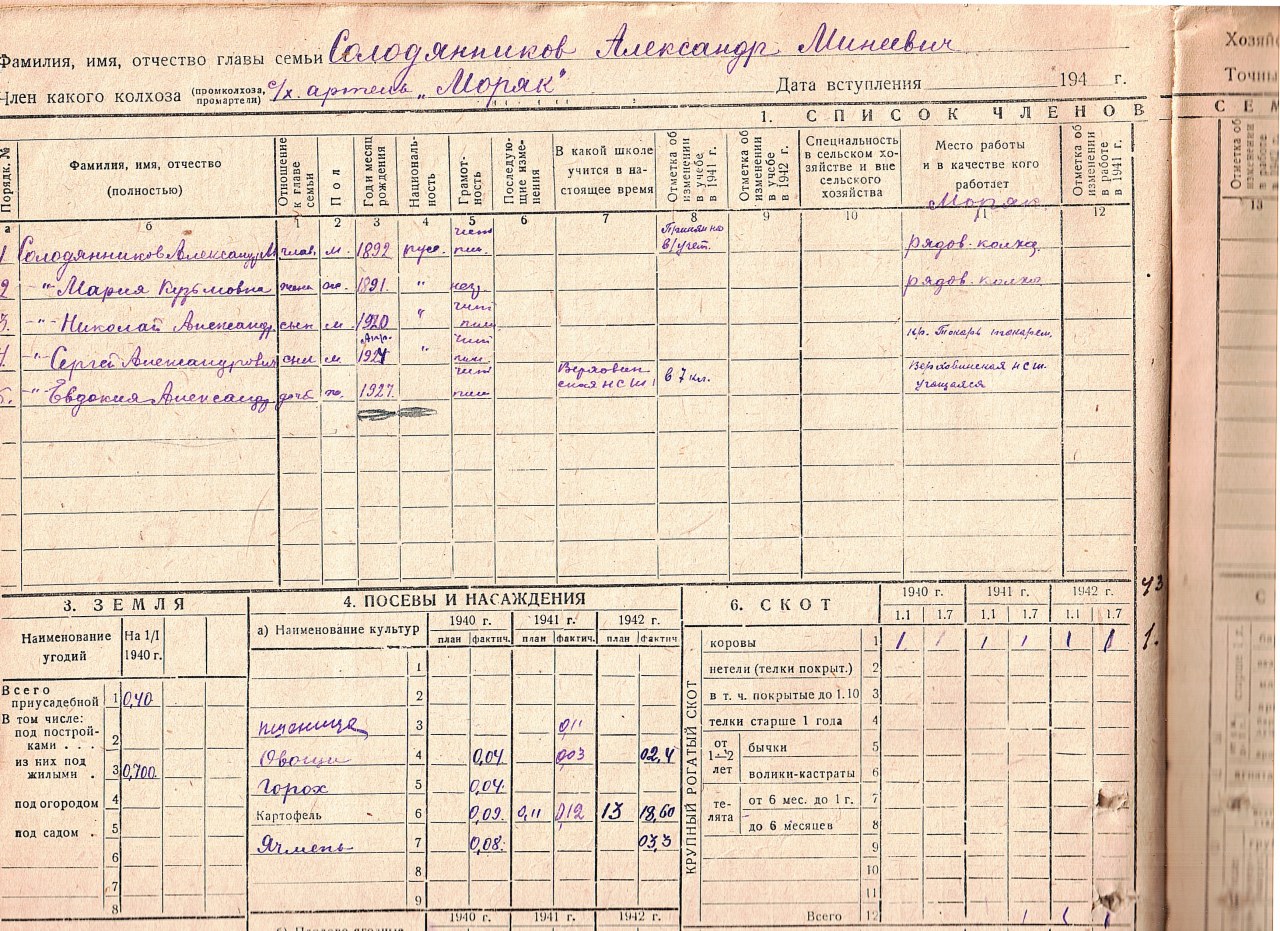 Фамилия, имя, отчество главы семьи Солодянников Александр Минеевич
Член какого колхоза (промколхоза, промартели) с/х. артель „Моряк" Дата вступления 194 г.
1. СПИСОК ЧЛЕНОВ
Порядк. № Фамилия, имя, отчество (полностью) Отношение к главе семьи Пол Год и месяц рождения Националь-ность Грамот-ность Последую-щие изме-нения В какой школе учится в на-стоящее время Отметка об изменении в учебе в 1941 г. Отметка об изменении в учебе в 1942 г. Специальность в сельском хо-зяйстве и вне сельского хозяйства Место работы и в качестве кого работает Отметка об изменении в работе в 1941 г.
а б 1 2 3 4 5 6 7 8 9 10 11 12
Моряк
1 Солодянников Александр М глав. м. 1892 русс. чит пис. в/учет. рядов. колхоз.
2 -"- Мария Кузьмовна жена ж. 1891. " нег. рядов. колхоз
3. -"- Николай Александр. сын м. 1920 " чит пис
4. -"- Сергей Александрович сын м 1924 " чит пис
5. -"- Евдокия Александр дочь ж. 1927. чит пис Верховин-ская НСШ в 7 кл. Верховинская НСШ учащаяся
3. ЗЕМЛЯ
Наименование угодий На 1/I 1940 г.
Всего приусадебной 1 0,40
В том числе: под построй-ками . . . 2
из них под жилыми . 3 0,700.
под огородом 4
под садом . 5
6
7
8
4. ПОСЕВЫ И НАСАЖДЕНИЯ
а) Наименование культур 1940 г. 1941 г. 1942 г.
план фактич. план фактич. план фактич
1
2
пшеница 3 0,11
Овощи 4 0,04 0,03 02,4
Горох 5 0,04.
Картофель 6 0,09. 0,11 0,12 13 18,60
Ячмень 7 0,08. 03,3
8
9
1940 г. 1941 г. 1942 г.
6. СКОТ
1940 г. 1941 г. 1942 г.
1.1 1.7 1.1 1.7 1.1 1.7
КРУПНЫЙ РОГАТЫЙ СКОТ
коровы 1 1 1 1 1 1 1
нетели (телки покрыт.) 2
в т. ч. покрытые до 1.10 3
телки старше 1 года 4
от 1—2 лет бычки 5
волики-кастраты 6
те-лята от 6 мес. до 1 г. 7
до 6 месяцев 8
9
10
11
Всего 12 1 1 1
43
1.
Хозяй
Точны
СЕМ
Отметка об изменении в работе в 1942 г.
13
С